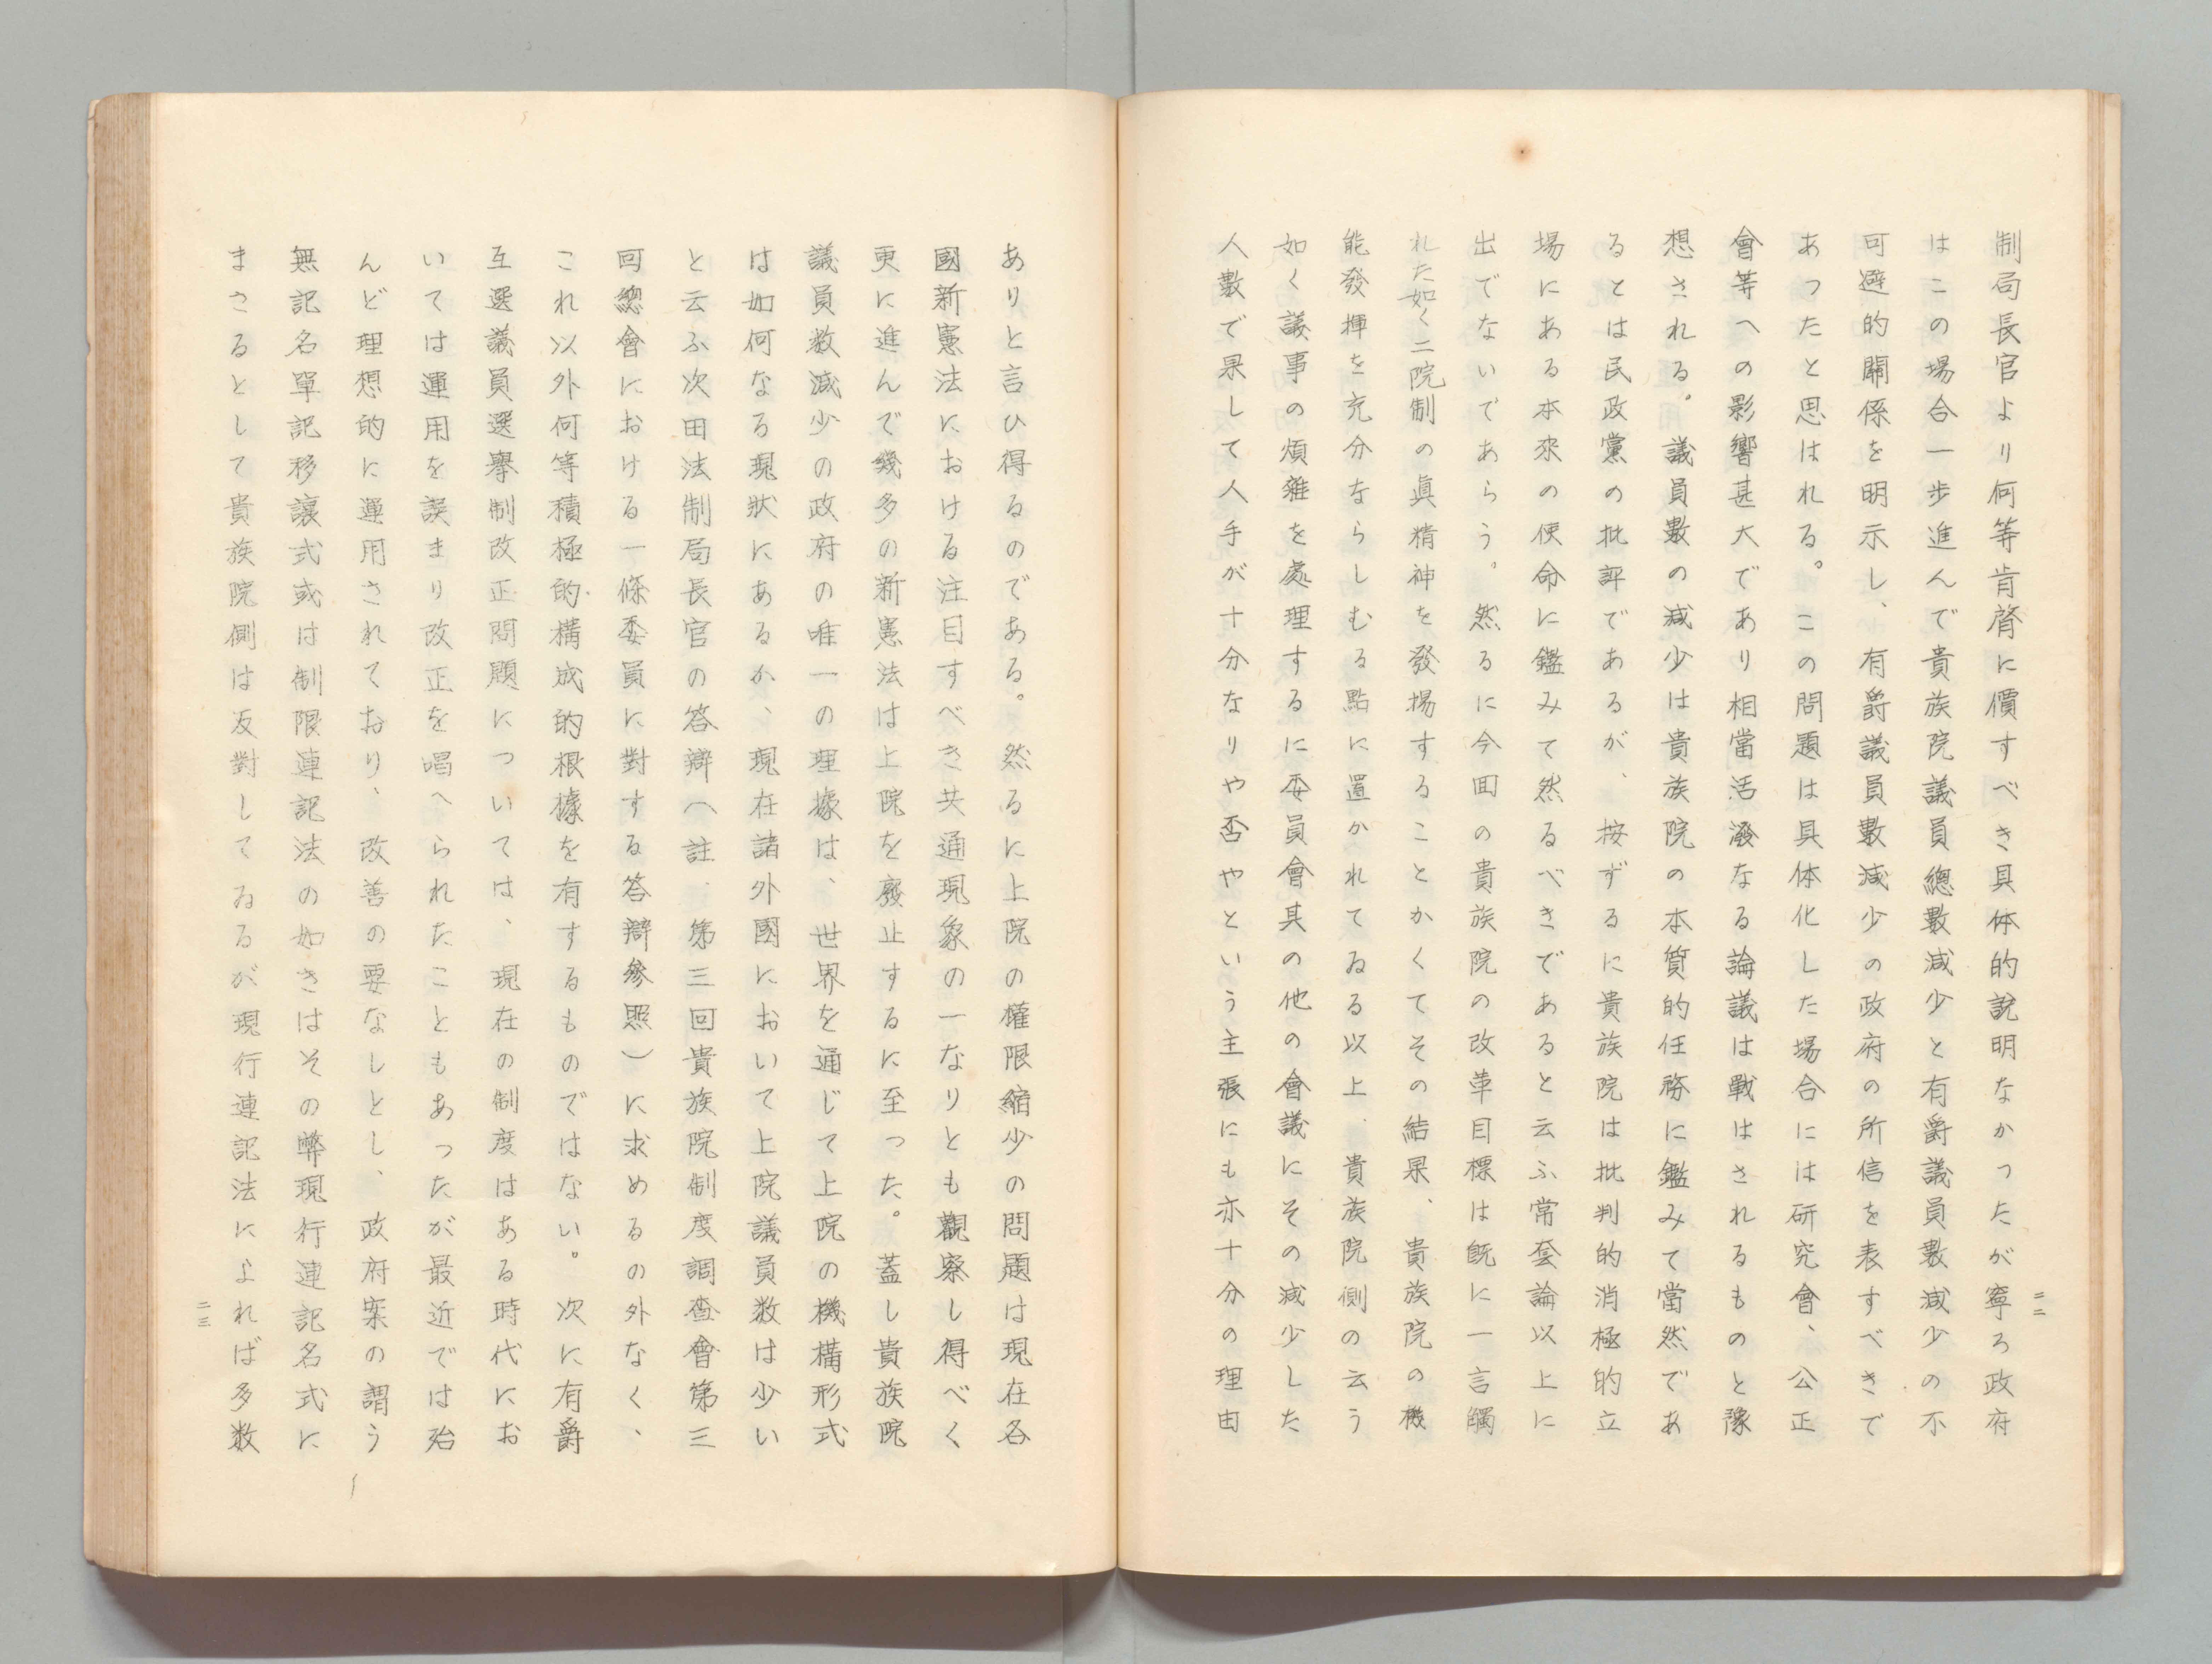 制局長官より何等肯綮に價すべき具体的說明なかつたが寧ろ政府
はこの場合一步進んで貴族院議員總數減少と有爵議員數減少の不
可避的關係を明示し、有爵議員數減少の政府の所信を表すべきで
あつたと思はれる。この問題は具体化した場合には研究會、公正
會等への影響甚大であり相當活潑なる論議は戰はされるものと豫
想される。議員數の減少は貴族院の本質的任務に鑑みて當然であ
るとは民政黨の批評であるが、按ずるに貴族院は批判的消極的立
場にある本來の使命に鑑みて然るべきであると云ふ常套論以上に
出でないであらう。然るに今回の貴族院の改革目標は既に一言觸
れた如く二院制の眞精神を發揚することかくてその結果、貴族院の機
能發揮を充分ならしむる點に置かれてゐる以上、貴族院側の云う
如く議事の煩雜を處理するに委員會其の他の會議にその減少した
人數で果して人手が十分なりや否やという主張にも亦十分の理由
二二
ありと言ひ得るのである。然るに上院の權限縮少の問題は現在各
國新憲法における注目すべき共通現象の一なりとも觀察し得べく
更に進んで幾多の新憲法は上院を廢止するに至った。蓋し貴族院
議員数減少の政府の唯一の理據は、世界を通じて上院の機構形式
は如何なる現狀にあるか、現在諸外國において上院議員数は少い
と云ふ次田法制局長官の答辯（註．第三回貴族院制度調査會第三
回總會における一條委員に對する答辯參照）に求めるの外なく、
これ以外何等積極的構成的根據を有するものではない。次に有爵
互選議員選擧制改正問題については、現在の制度はある時代にお
いては運用を誤まり改正を唱へられたこともあったが最近では殆
んど理想的に運用されており、改善の要なしとし、政府案の謂う
無記名單記移讓式或は制限連記法の如きはその弊現行連記名式に
まさるとして貴族院側は反對してゐるが現行連記法によれば多数
二三